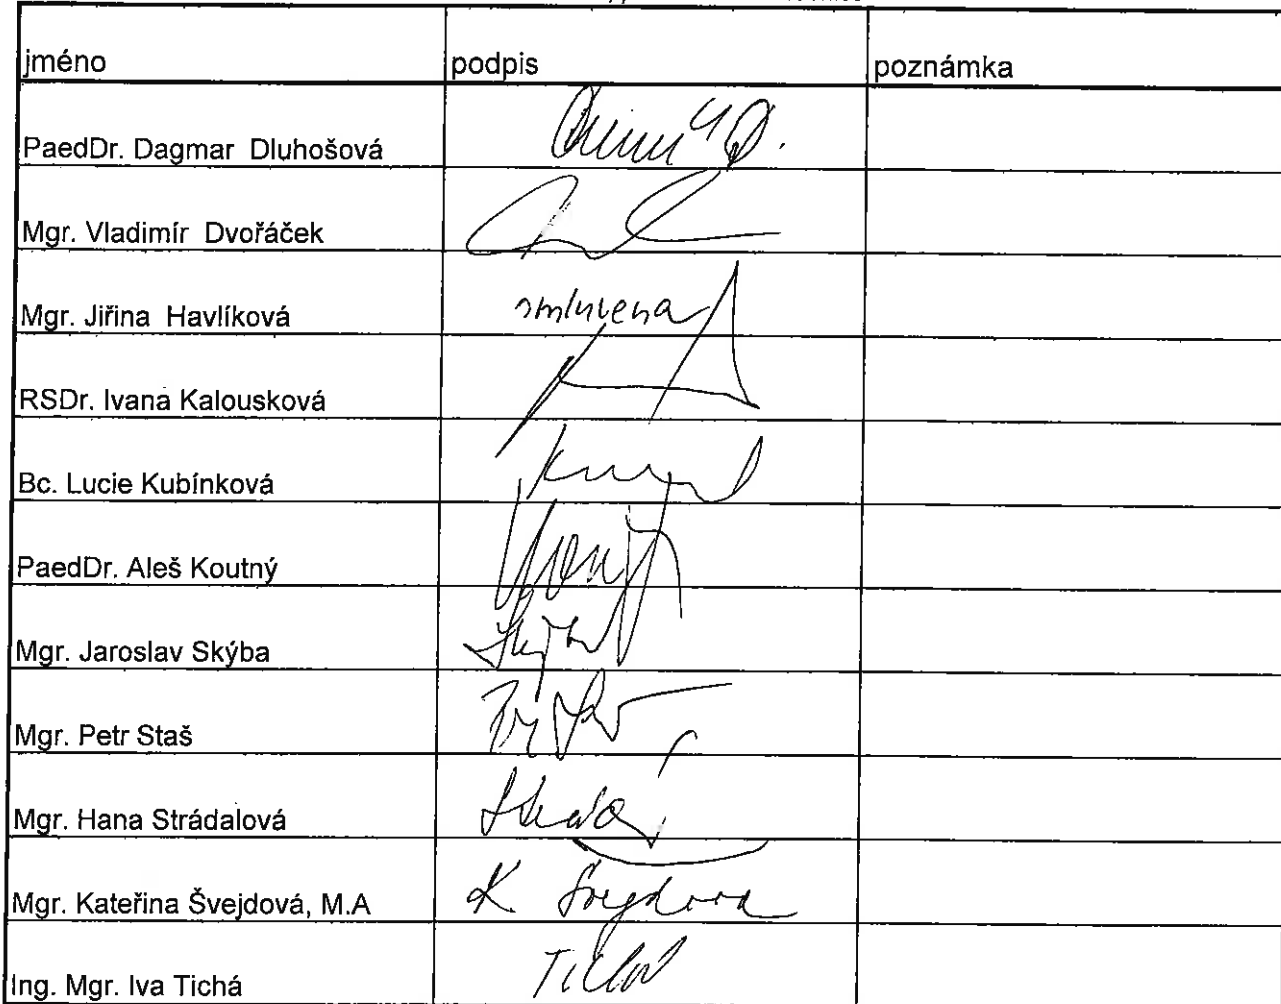 jméno podpis poznámka
PaedDr. Dagmar Dluhošová
Mgr. Vladimír Dvořáček
Mgr. Jiřina Havlíková omluvena
RSDr. Ivana Kalousková
Bc. Lucie Kubínková
PaedDr. Aleš Koutný
Mgr. Jaroslav Skýba
Mgr. Petr Staš
Mgr. Hana Strádalová
Mgr. Kateřina Švejdová, M.A K Švejdová
Ing. Mgr. Iva Tichá Tichá